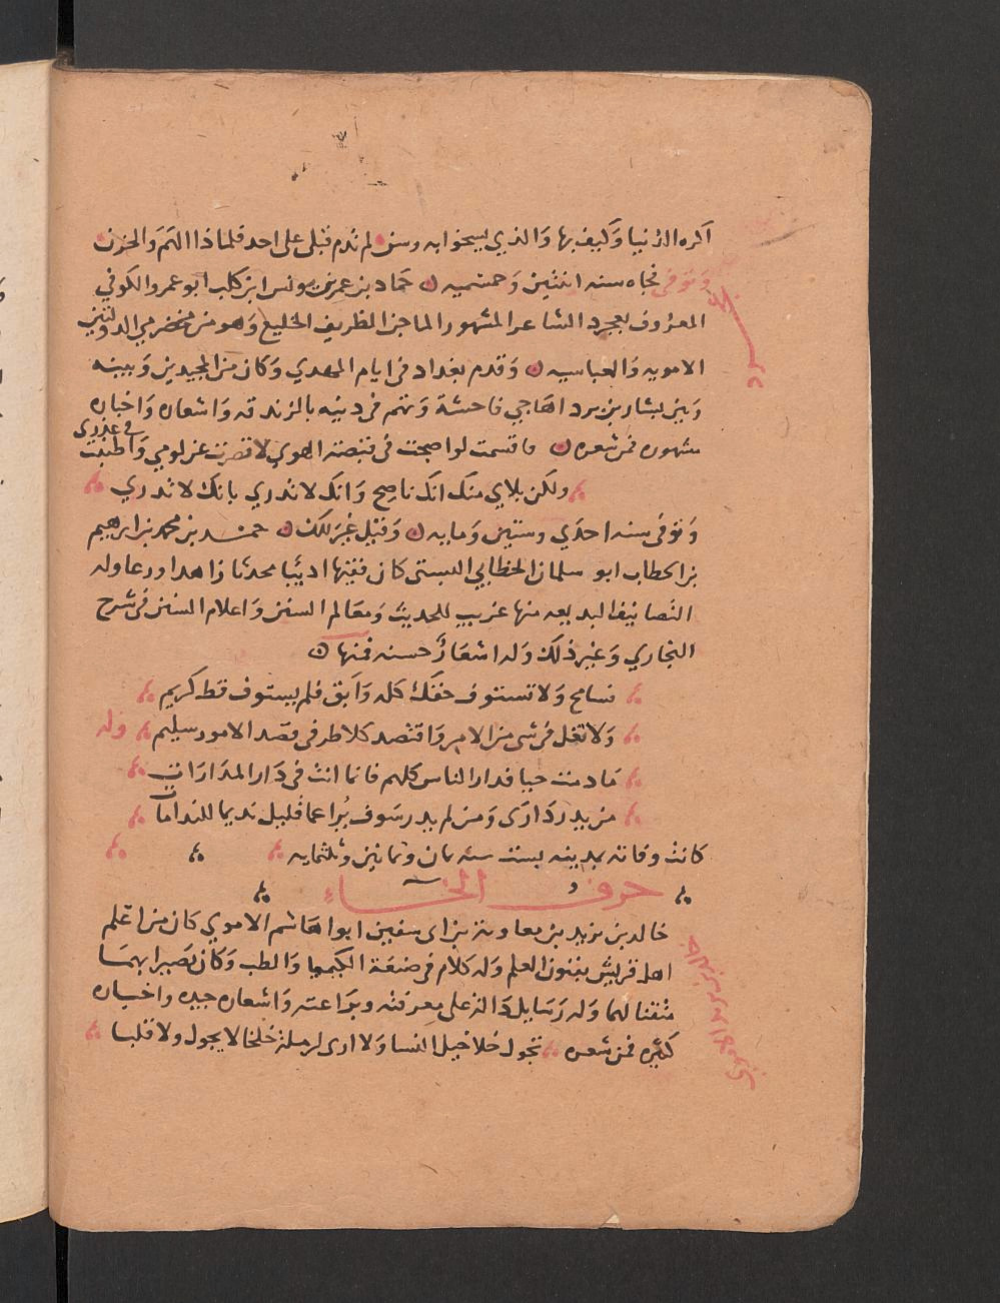 اكره الدنيا وَكيف بها وَالذي يسخوا به وسن لم تدم قبلى على احد فلماذا الهَم وَالحزن
وتوفى نجاه سنه اثنتين وَخمسميه ن حمَاد بن عمر بن يونس ابن كلب ابو عمرو الكوفي
المعرُوف بعجرد الشاعر المشهور الماجن الظريف الخليع وَهو من مخضرمي الدولتين
الامويه وَالعباسيه ن وَقدم بغداد فى ايام المهدي وَكان من المجيدين وَبينه
وَبين بشار بن برد اهَاجي فاحشة وَيتهم فى دينه بالزندقه وَاشعاره وَاخباره
مشهوره فمن شعره ن فاقسمت لو اصبحت فى قبضته الهوي لاقصرت عن لومي وَاطنبت
في عذري
ولكن بلاي منك انك ناصح وَانك لا تدري بانك لا تدري
وَتوفى سنه احدَي وستين وَمايه ن وَقيل غيَر ذلك ن حمد بن محمد بن ابرهيم
بن الخطاب ابو سلمان الخطابي البستى كان فقيها اديبًا محدثا زاهدا ورعا وله
التصانيف البديعه منها غريب الحديث وَمعَالم السنن وَاعلام السنن فى شرح
البخاري وَغير ذلك وَله اشعَارٌ حسنه فمنها ن
تسامح وَلا تستوف حقك كله وَاَبق فلم يستوف قط كريم
وَلا تغل فى شى من الامر وَاقتصد كلا طرفى قصد الامور سليم وله
مَا دمت حيا فدار الناس كلهم فانما انت فى دَار المدَارَات
من يدر دَارَى وَمن لم يدر سَوف يُرا عما قليل نديما للندامَا
كانت وفاته بمدينه بست سنه ثمان وثمانين وَثلثمايه
حرف الخاء
خالد بن يزيد بن معاوية بن ابى سفين ابوا هَاشم الاموي كان من اعلم
اهل قريش بفنون العلم وَله كلام فى صنعَة الكيميا وَالطب وَكان بَصيرا بهمَا
متقنا لهما وَله رَسَايل دَالة على معرفته وبرَاعته وَاشعاره جيده واخباره
كثيره فمن شعره تجول خلاخيل النسا وَلا ارى لرملة خلخالا يجول ولا قلبا